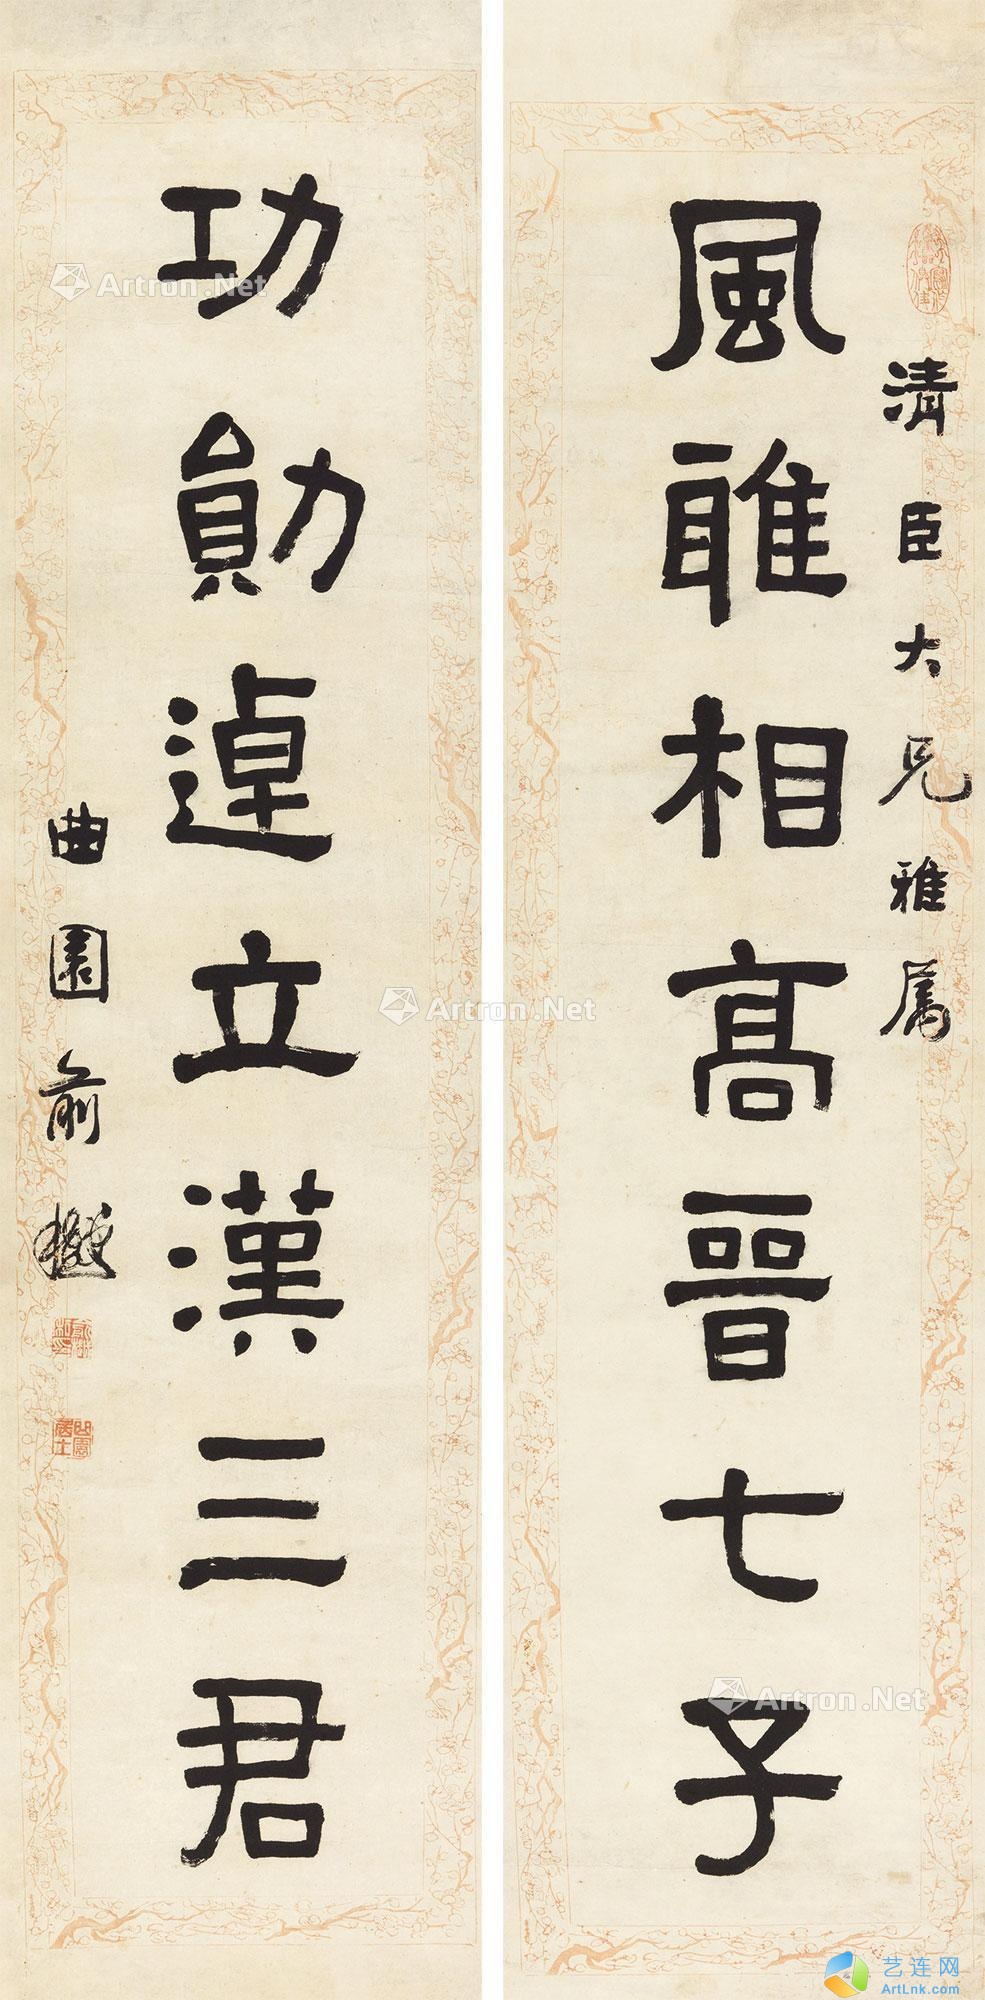 清臣大兄雅属
風雅相高晉七子
功勛逴立漢三君
曲園俞樾
俞樾私印
曲園居士
Artron.Net
Artron.Net
Artron.Net
艺连网
ArtLnk.com